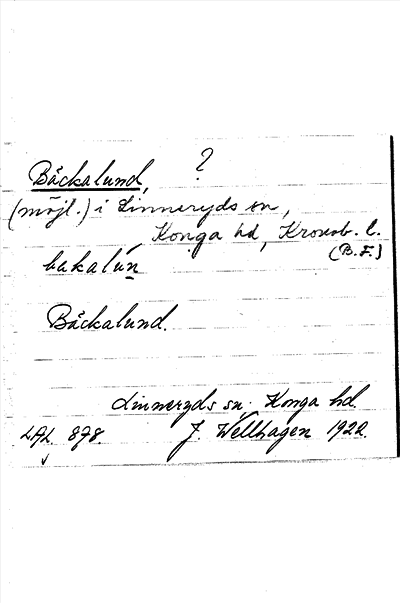 ?
Bäckalund,
(möjl.) i Linneryds sn,
Konga hd, Kronob. l.
(B.F.)
bakalún
Bäckalund.
Linneryds sn. Konga hd.
LAL. 878. J. Wellhagen 1920.